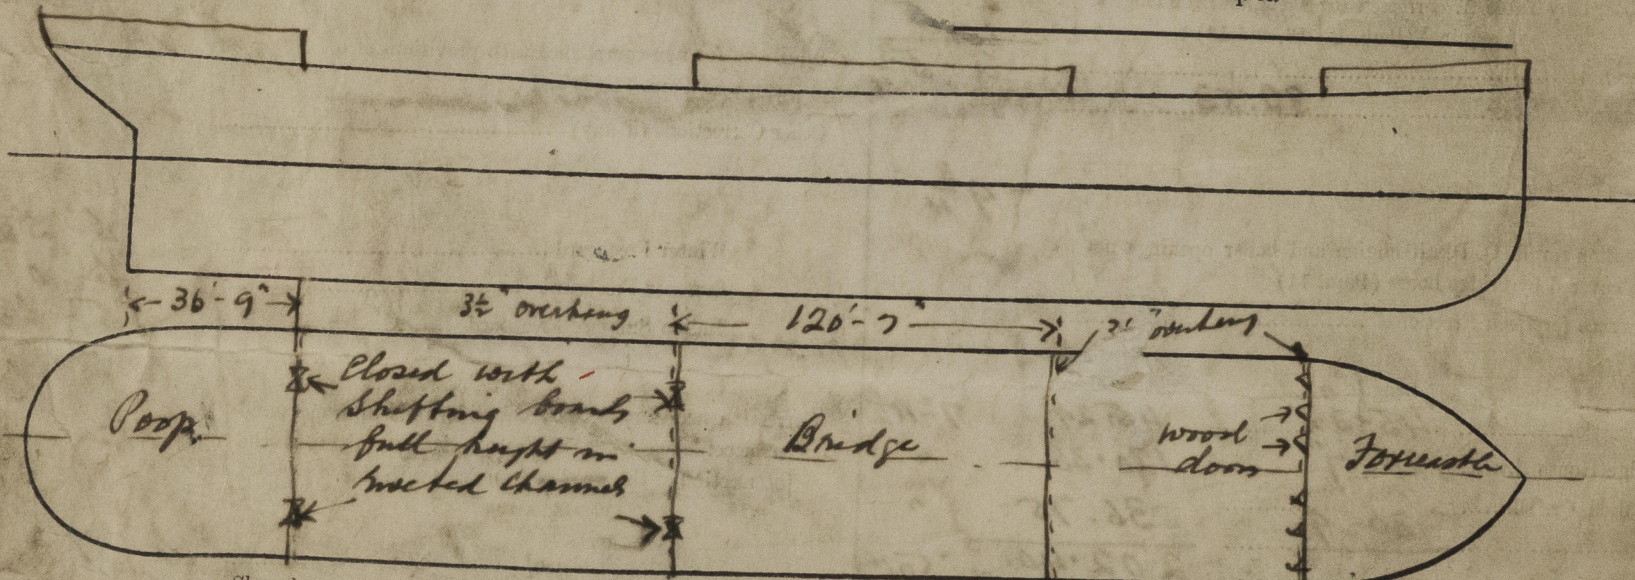 36'-9"
3½" overhang
120'-7"
overhang
Closed with
shifting boards
full height in
riveted channels
Poop.
Bridge
wood
doors
Forecastle